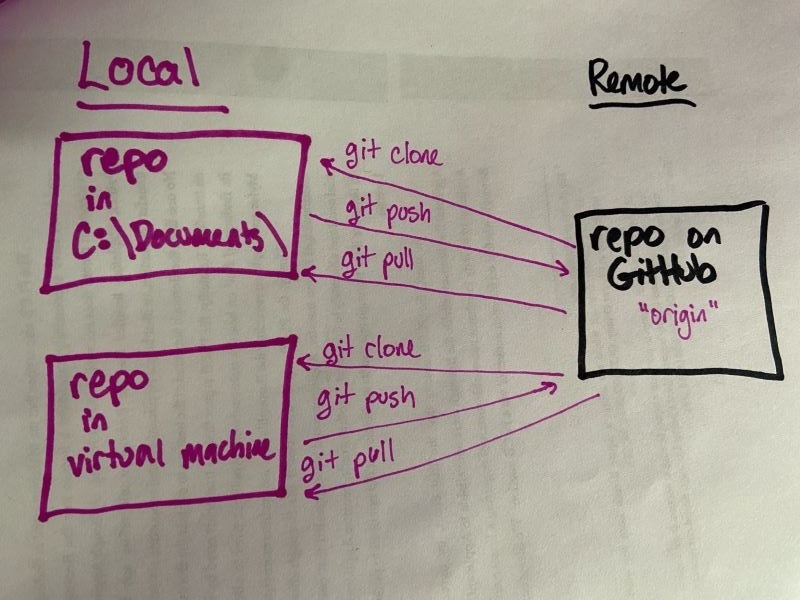 Local
Remote
repo
in
C:\Documents\
git clone
git push
git pull
repo on
GitHub
"origin"
repo
in
virtual machine
git clone
git push
git pull